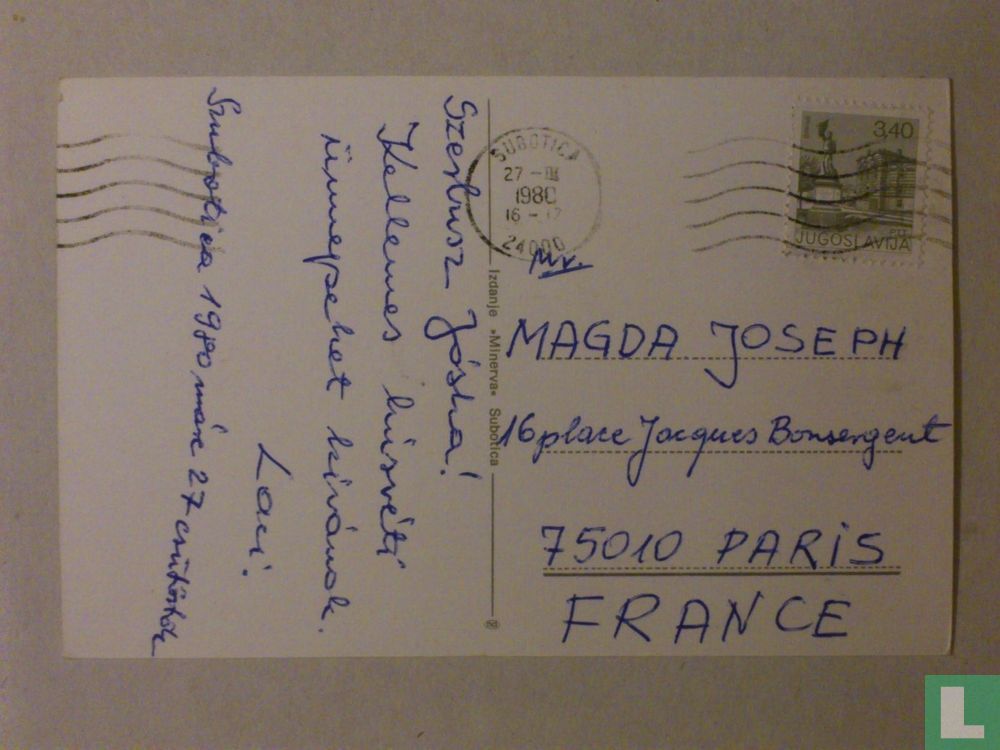 Szerbusz Jóska!
Kellemes húsvéti
ünnepeket kivánok.
Laci.
Szubotica 1980 márc 27 csütörtök
Izdanje »Minerva« Subotica
SUBOTICA
27 - III
1980
16 - 17
24000
3,40
PTT
JUGOSLAVIJA
Mr.
MAGDA JOSEPH
16 place Jacques Bonsergent
75010 PARIS
FRANCE
L